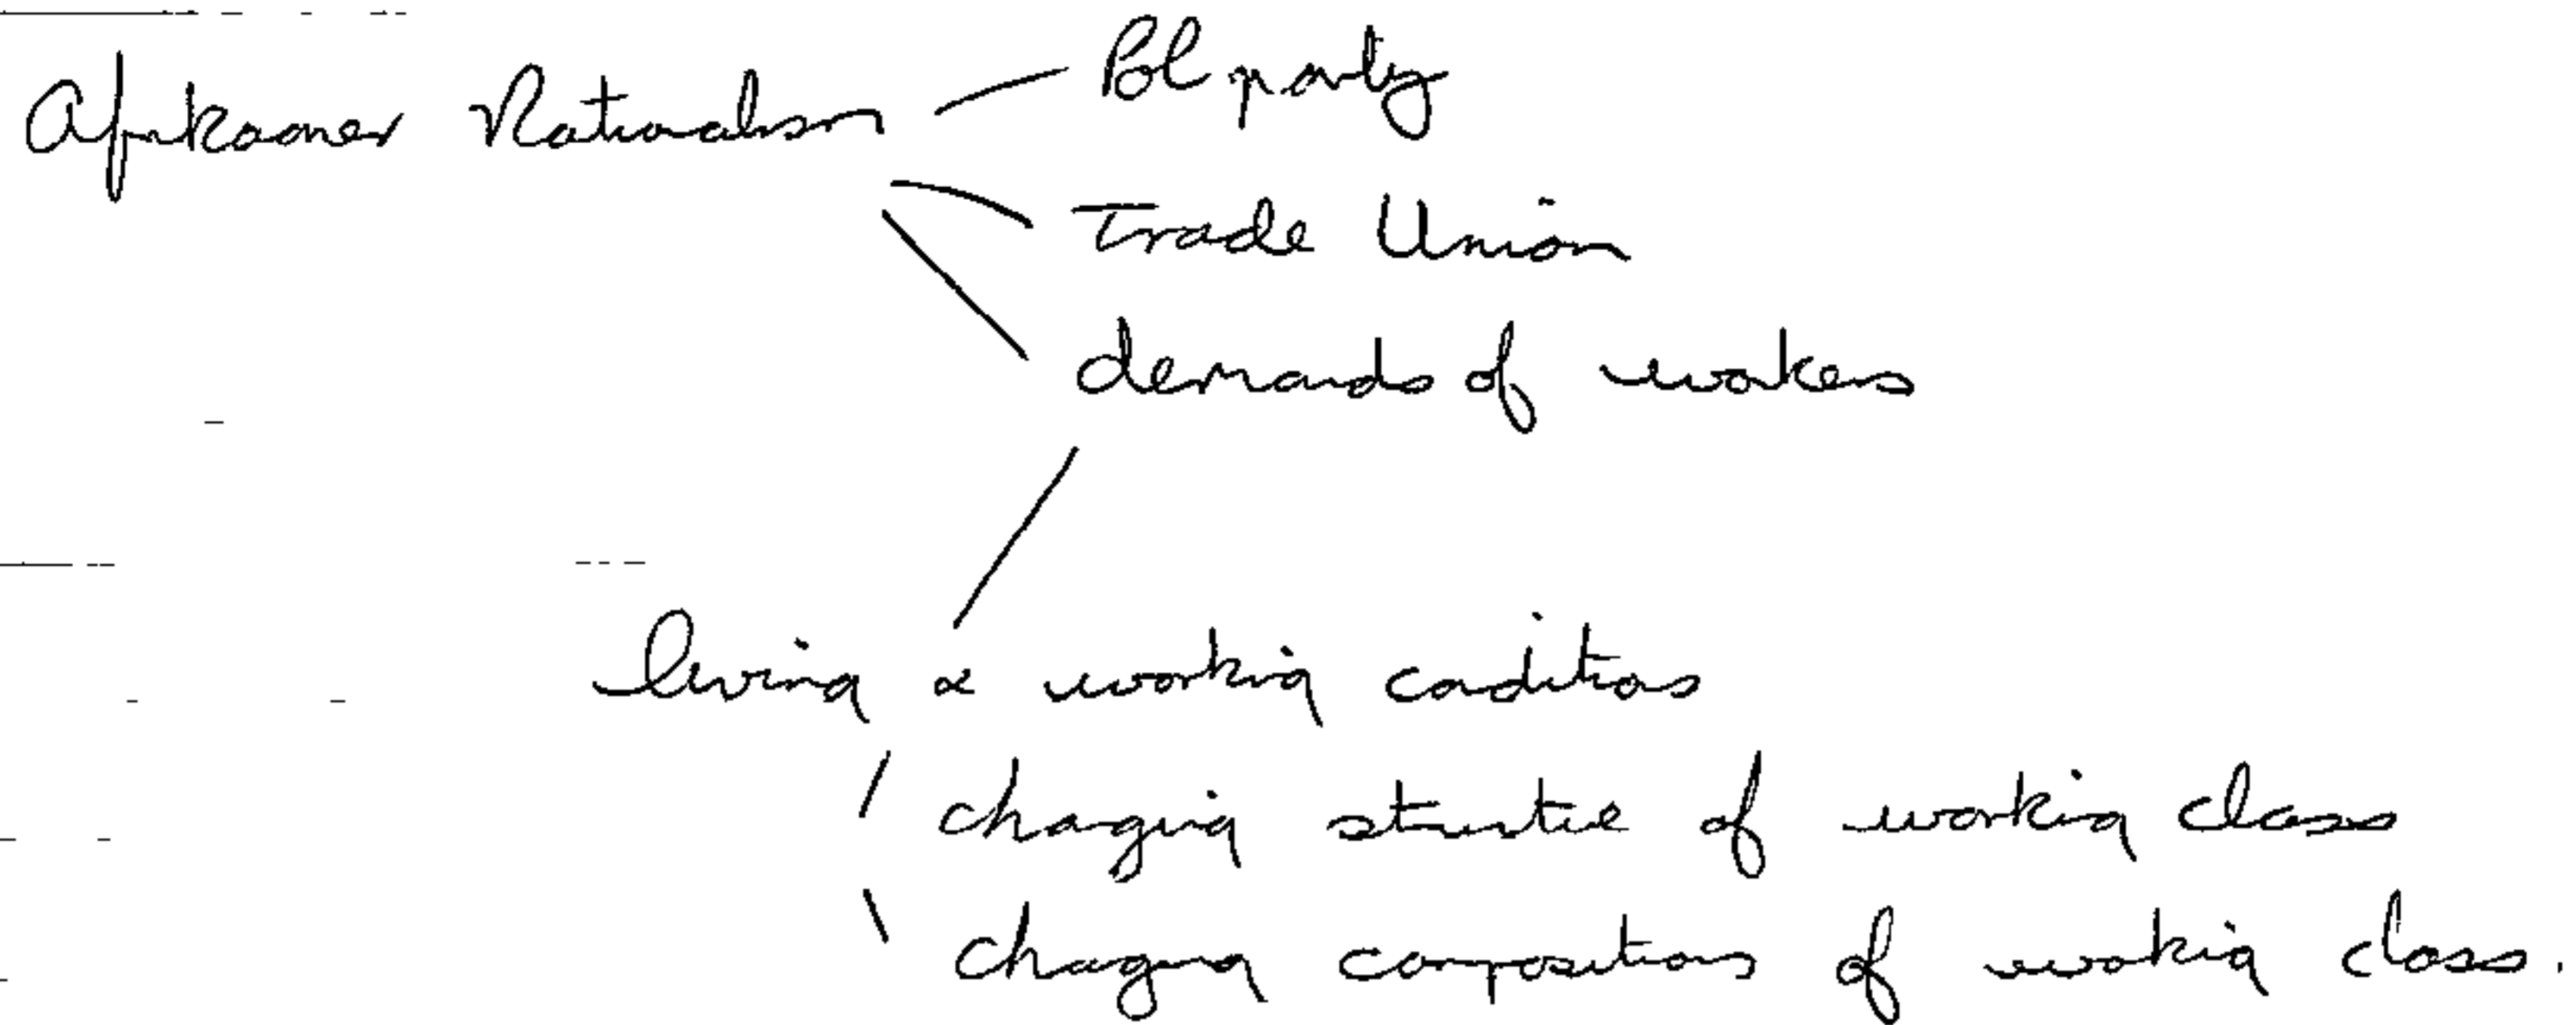 Afrikaaner Nationalism
Pol party
Trade Union
demands of workers
living & working conditions
changing structure of working class
changing compositions of working class.